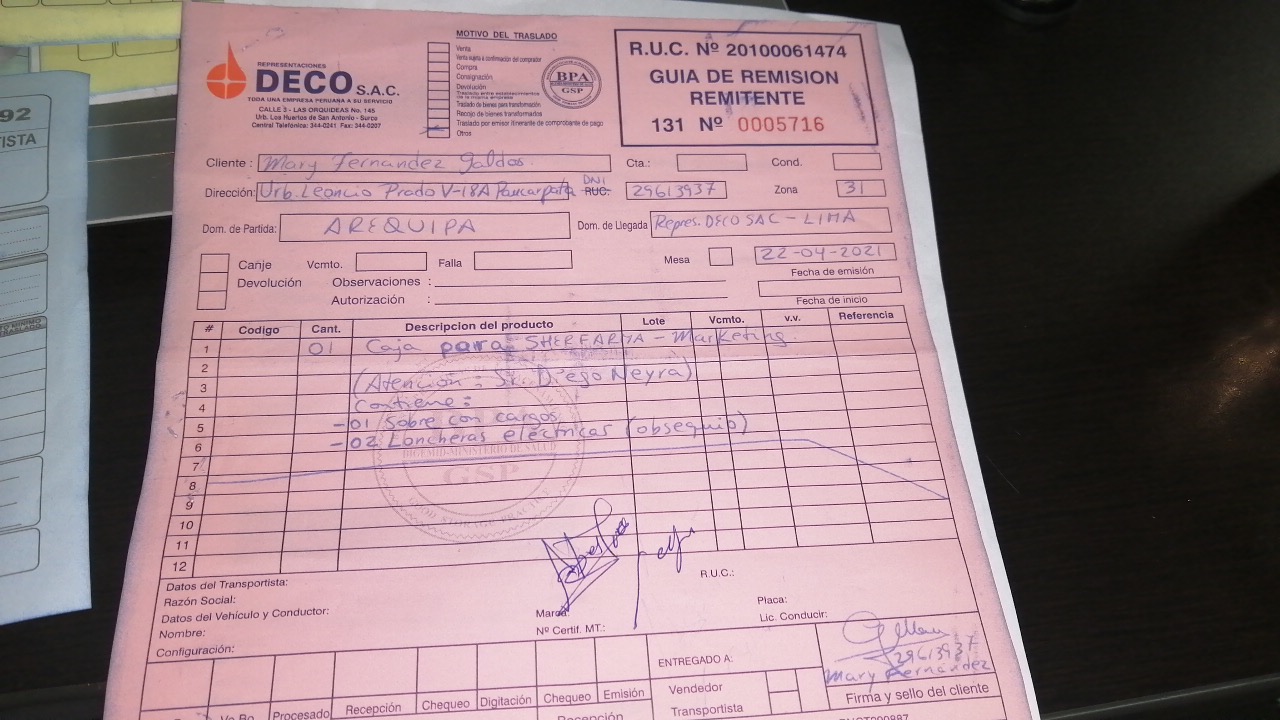 92
ISTA
REPRESENTACIONES
DECO S.A.C.
TODA UNA EMPRESA PERUANA A SU SERVICIO
CALLE 3 - LAS ORQUIDEAS No. 145
Urb. Los Huertos de San Antonio - Surco
Central Telefónica: 344-0241 Fax: 344-0207
MOTIVO DEL TRASLADO
Venta
Venta sujeta a confirmación del comprador
Compra
Consignación
Devolución
Traslado entre establecimientos de la misma empresa
Traslado de bienes para transformación
Recojo de bienes transformados
Traslado por emisor itinerante de comprobante de pago
Otros
BPA
GSP
R.U.C. Nº 20100061474
GUIA DE REMISION
REMITENTE
131 Nº 0005716
Cliente : Mary Fernandez Galdos. Cta.: Cond.
Dirección: Urb. Leoncio Prado V-18A Paucarpata DNI RUC: 29613937 Zona 31
Dom. de Partida: AREQUIPA Dom. de Llegada Repres. DECO SAC - LIMA
Canje Vcmto. Falla Mesa 22-04-2021
Fecha de emisión
Devolución Observaciones :
Autorización :
Fecha de inicio
# Codigo Cant. Descripcion del producto Lote Vcmto. v.v. Referencia
1 01 Caja para SHERFARMA - Marketing.
2
3 (Atención : Sr. Diego Neyra)
4 Contiene :
5 -01 Sobre con cargos
6 -02 Loncheras eléctricas (obsequio)
7
8
9
10
11
12
DIGEMID-MINISTERIO DE SALUD
GSP
GOOD STORAGE PRACTICE
Datos del Transportista:
Razón Social: R.U.C.:
Datos del Vehículo y Conductor: Marca: Placa:
Nombre: Nº Certif. MT.: Lic. Conducir:
Configuración:
ENTREGADO A:
29613937
Mary Fernández
Firma y sello del cliente
Vo.Bo. Procesado Recepción Chequeo Digitación Chequeo Emisión
Vendedor
Transportista
Recepción